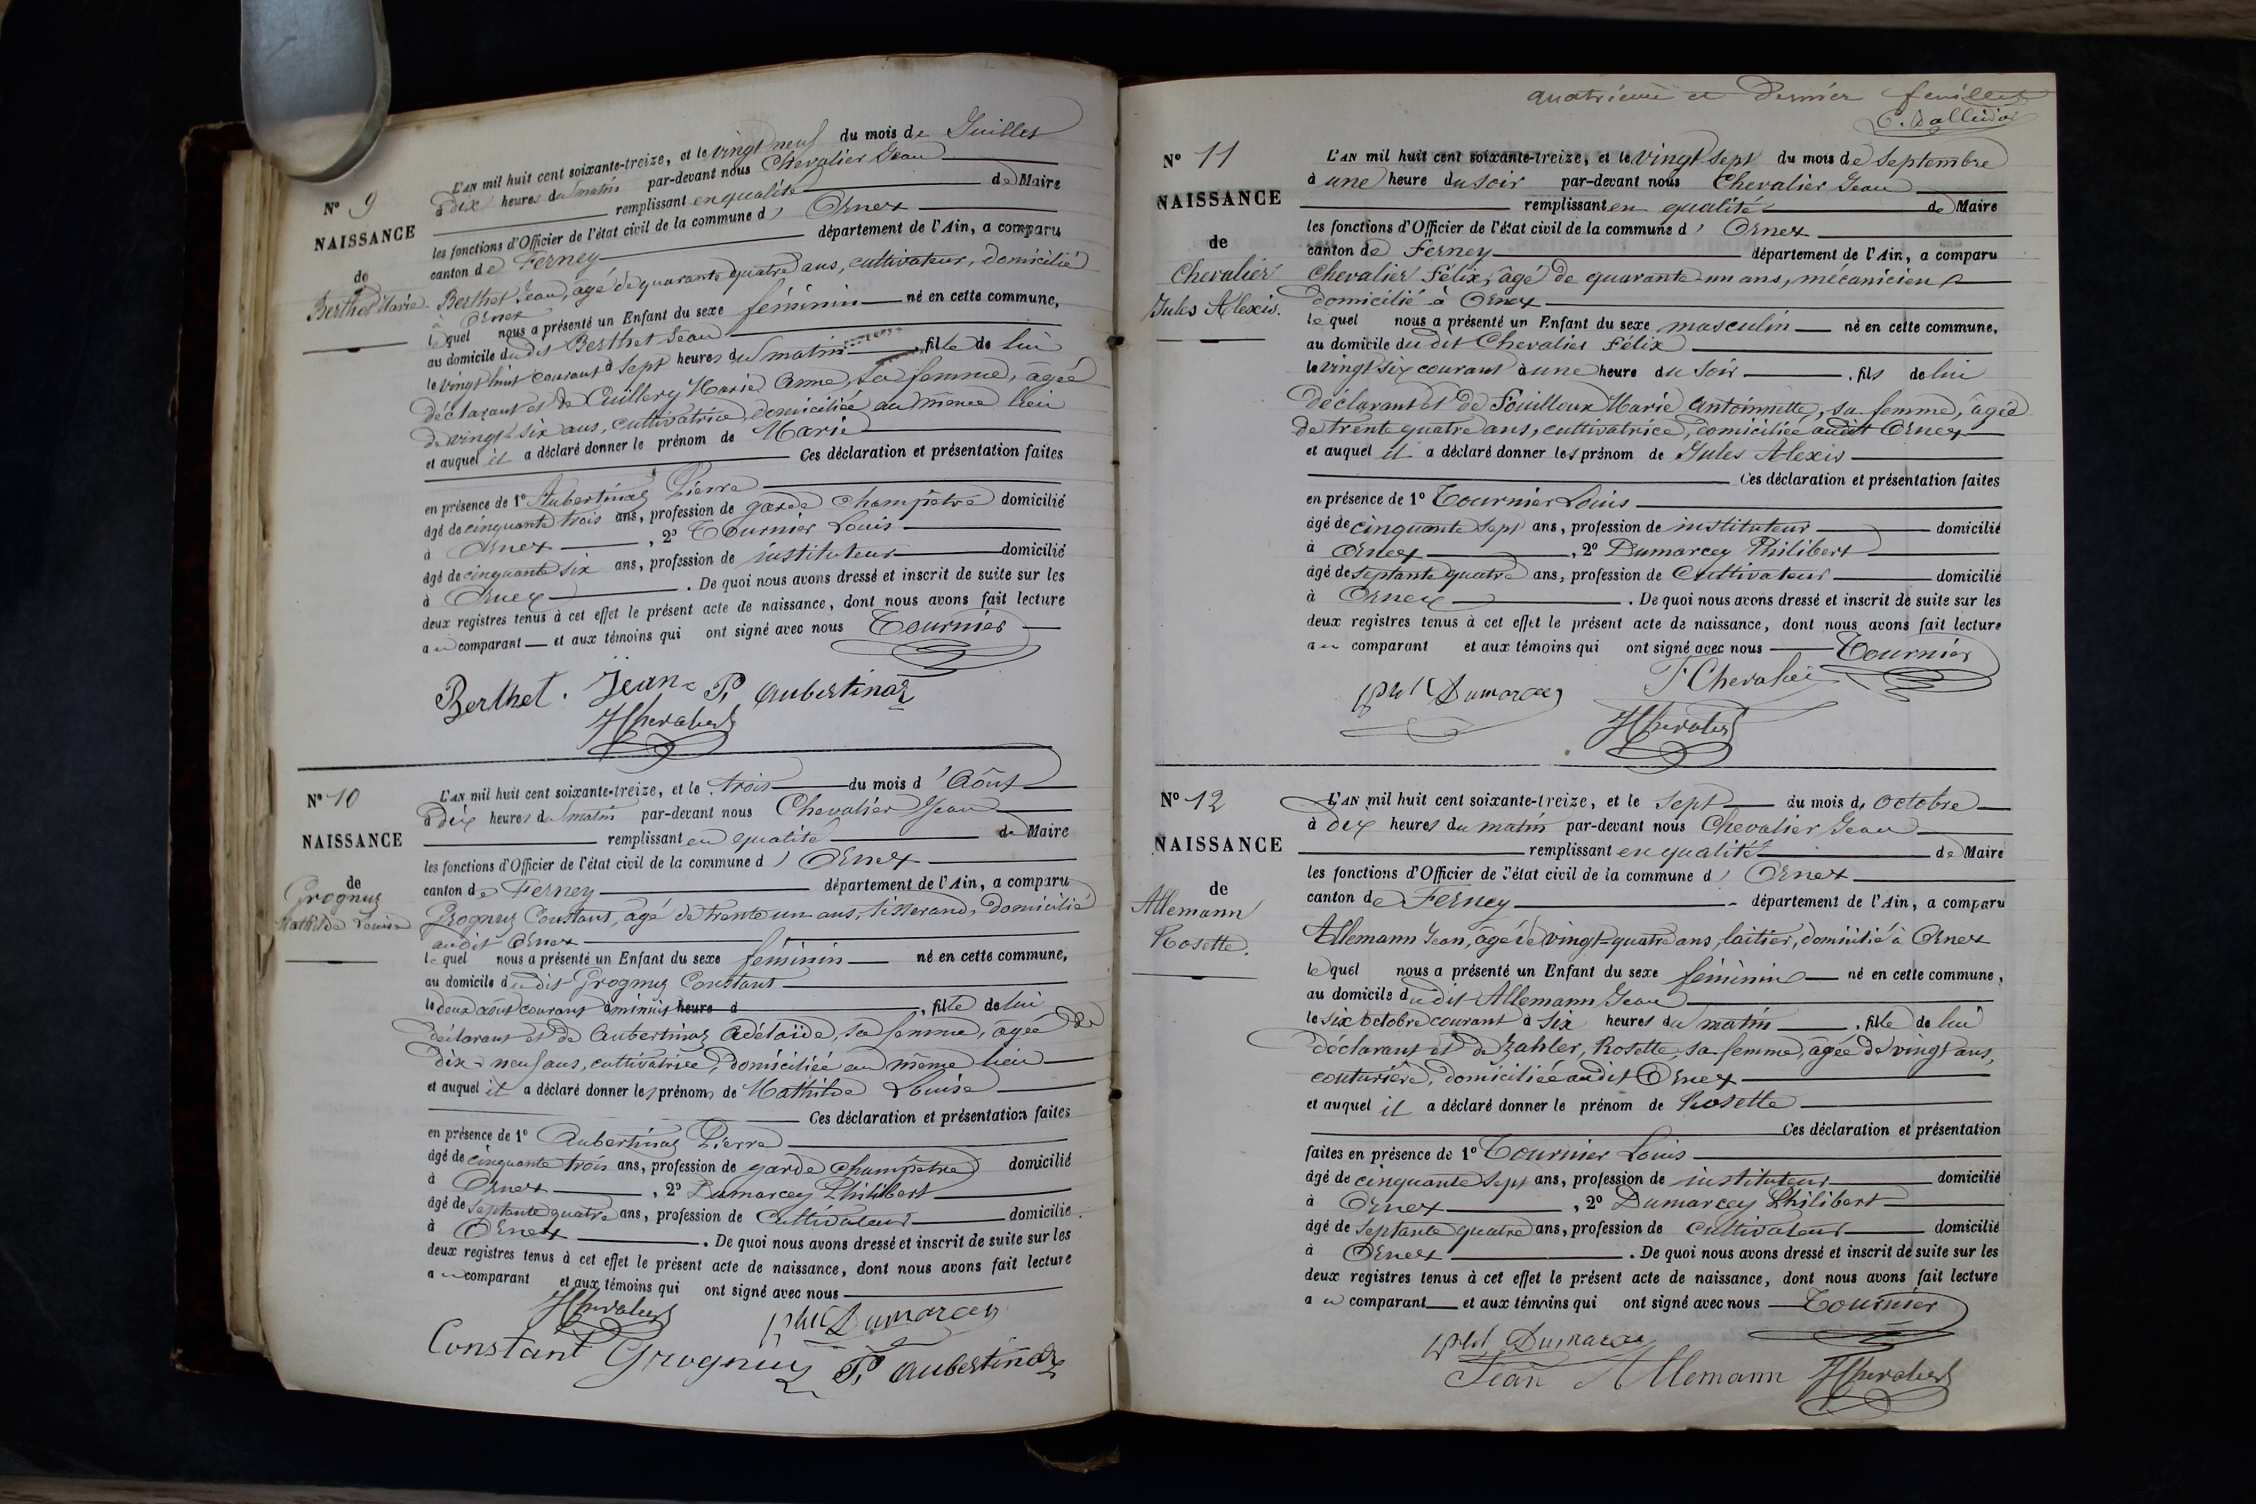 N° 9
NAISSANCE
de
Berthet Marie
L'AN mil huit cent soixante-treize, et le vingt neuf du mois de Juillet
à dix heures du matin par-devant nous Chevalier Jean
remplissant en qualité de Maire
les fonctions d'Officier de l'état civil de la commune d' Ornex
canton de Ferney département de l'Ain, a comparu
Berthet Jean, âgé de quarante quatre ans, cultivateur, domicilié
à Ornex
lequel nous a présenté un Enfant du sexe féminin né en cette commune,
au domicile dudit Berthet Jean
le vingt huit courant à sept heures du matin, fille de lui
déclarant et de Cuillery Marie Anne, sa femme, agée
de vingt six ans, cultivatrice, domiciliée au même lieu
et auquel il a déclaré donner le prénom de Marie
Ces déclaration et présentation faites
en présence de 1° Aubertinaz Pierre
âgé de cinquante trois ans, profession de garde champêtre domicilié
à Ornex, 2° Tournier Louis
âgé de cinquante six ans, profession de instituteur domicilié
à Ornex. De quoi nous avons dressé et inscrit de suite sur les
deux registres tenus à cet effet le présent acte de naissance, dont nous avons fait lecture
au comparant et aux témoins qui ont signé avec nous Tournier
Berthet. Jean P. Aubertinaz
J Chevalier
N° 10
NAISSANCE
de
Grognuz
Mathilde Louise
L'AN mil huit cent soixante-treize, et le trois du mois d'Août
à dix heures du matin par-devant nous Chevalier Jean
remplissant en qualité de Maire
les fonctions d'Officier de l'état civil de la commune d' Ornex
canton de Ferney département de l'Ain, a comparu
Grognuz Constant, âgé de trente un ans, tisserand, domicilié
audit Ornex
lequel nous a présenté un Enfant du sexe féminin né en cette commune,
au domicile dudit Grognuz Constant
le deux août courant à minuit heure d, fille de lui
déclarant et de Aubertinaz Adélaïde, sa femme, agée de
dix-neuf ans, cultivatrice, domiciliée au même lieu
et auquel il a déclaré donner les prénoms de Mathilde Louise
Ces déclaration et présentation faites
en présence de 1° Aubertinaz Pierre
âgé de cinquante trois ans, profession de garde champêtre domicilié
à Ornex, 2° Dumarcey Philibert
âgé de septante quatre ans, profession de cultivateur domicilié
à Ornex. De quoi nous avons dressé et inscrit de suite sur les
deux registres tenus à cet effet le présent acte de naissance, dont nous avons fait lecture
au comparant et aux témoins qui ont signé avec nous
J Chevalier Dumarcey
Constant Grognuz P. Aubertinaz
quatrième et dernier feuillet
N° 11
NAISSANCE
de
Chevalier
Jules Alexis.
L'AN mil huit cent soixante-treize, et le vingt sept du mois de septembre
à une heure du soir par-devant nous Chevalier Jean
remplissant en qualité de Maire
les fonctions d'Officier de l'état civil de la commune d' Ornex
canton de Ferney département de l'Ain, a comparu
Chevalier Félix, âgé de quarante-un ans, mécanicien
domicilié à Ornex
lequel nous a présenté un Enfant du sexe masculin né en cette commune,
au domicile dudit Chevalier Félix
le vingt six courant à une heure du soir, fils de lui
déclarant et de Fouilloux Marie Antoinnette, sa femme, âgée
de trente quatre ans, cultivatrice, domiciliée audit Ornex
et auquel il a déclaré donner les prénom de Jules Alexis
Ces déclaration et présentation faites
en présence de 1° Tournier Louis
âgé de cinquante sept ans, profession de instituteur domicilié
à Ornex, 2° Dumarcey Philibert
âgé de septante quatre ans, profession de cultivateur domicilié
à Ornex. De quoi nous avons dressé et inscrit de suite sur les
deux registres tenus à cet effet le présent acte de naissance, dont nous avons fait lecture
au comparant et aux témoins qui ont signé avec nous Tournier
Dumarcey F Chevalier
J Chevalier
N° 12
NAISSANCE
de
Allemann
Rosette.
L'AN mil huit cent soixante-treize, et le sept du mois de octobre
à dix heures du matin par-devant nous Chevalier Jean
remplissant en qualité de Maire
les fonctions d'Officier de l'état civil de la commune d' Ornex
canton de Ferney département de l'Ain, a comparu
Allemann Jean, âgé de vingt-quatre ans, laitier, domicilié à Ornex
lequel nous a présenté un Enfant du sexe féminin né en cette commune,
au domicile dudit Allemann Jean
le six octobre courant à six heures du matin, fille de lui
déclarant et de Zahler, Rosette, sa femme, âgée de vingt ans,
couturière, domiciliée audit Ornex
et auquel il a déclaré donner le prénom de Rosette
Ces déclaration et présentation
faites en présence de 1° Tournier Louis
âgé de cinquante sept ans, profession de instituteur domicilié
à Ornex, 2° Dumarcey Philibert
âgé de septante quatre ans, profession de cultivateur domicilié
à Ornex. De quoi nous avons dressé et inscrit de suite sur les
deux registres tenus à cet effet le présent acte de naissance, dont nous avons fait lecture
au comparant et aux témoins qui ont signé avec nous Tournier
Dumarcey
Jean Allemann J Chevalier